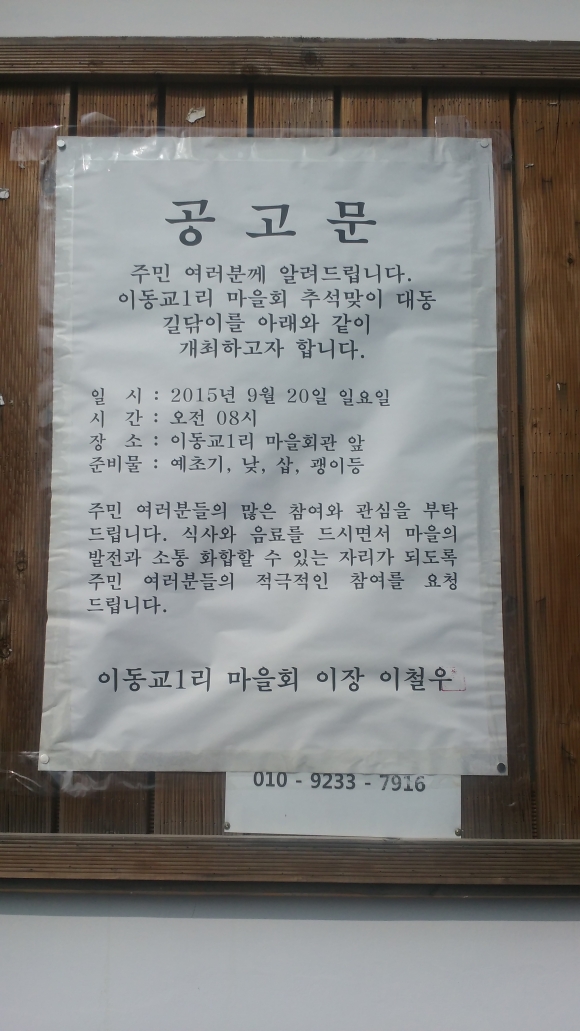 공고문
주민 여러분께 알려드립니다.
이동교1리 마을회 추석맞이 대동
길닦이를 아래와 같이
개최하고자 합니다.
일 시 : 2015년 9월 20일 일요일
시 간 : 오전 08시
장 소 : 이동교1리 마을회관 앞
준비물 : 예초기, 낫, 삽, 괭이등
주민 여러분들의 많은 참여와 관심을 부탁
드립니다. 식사와 음료를 드시면서 마을의
발전과 소통 화합할 수 있는 자리가 되도록
주민 여러분들의 적극적인 참여를 요청
드립니다.
이동교1리 마을회 이장 이철우
010 - 9233 - 7916